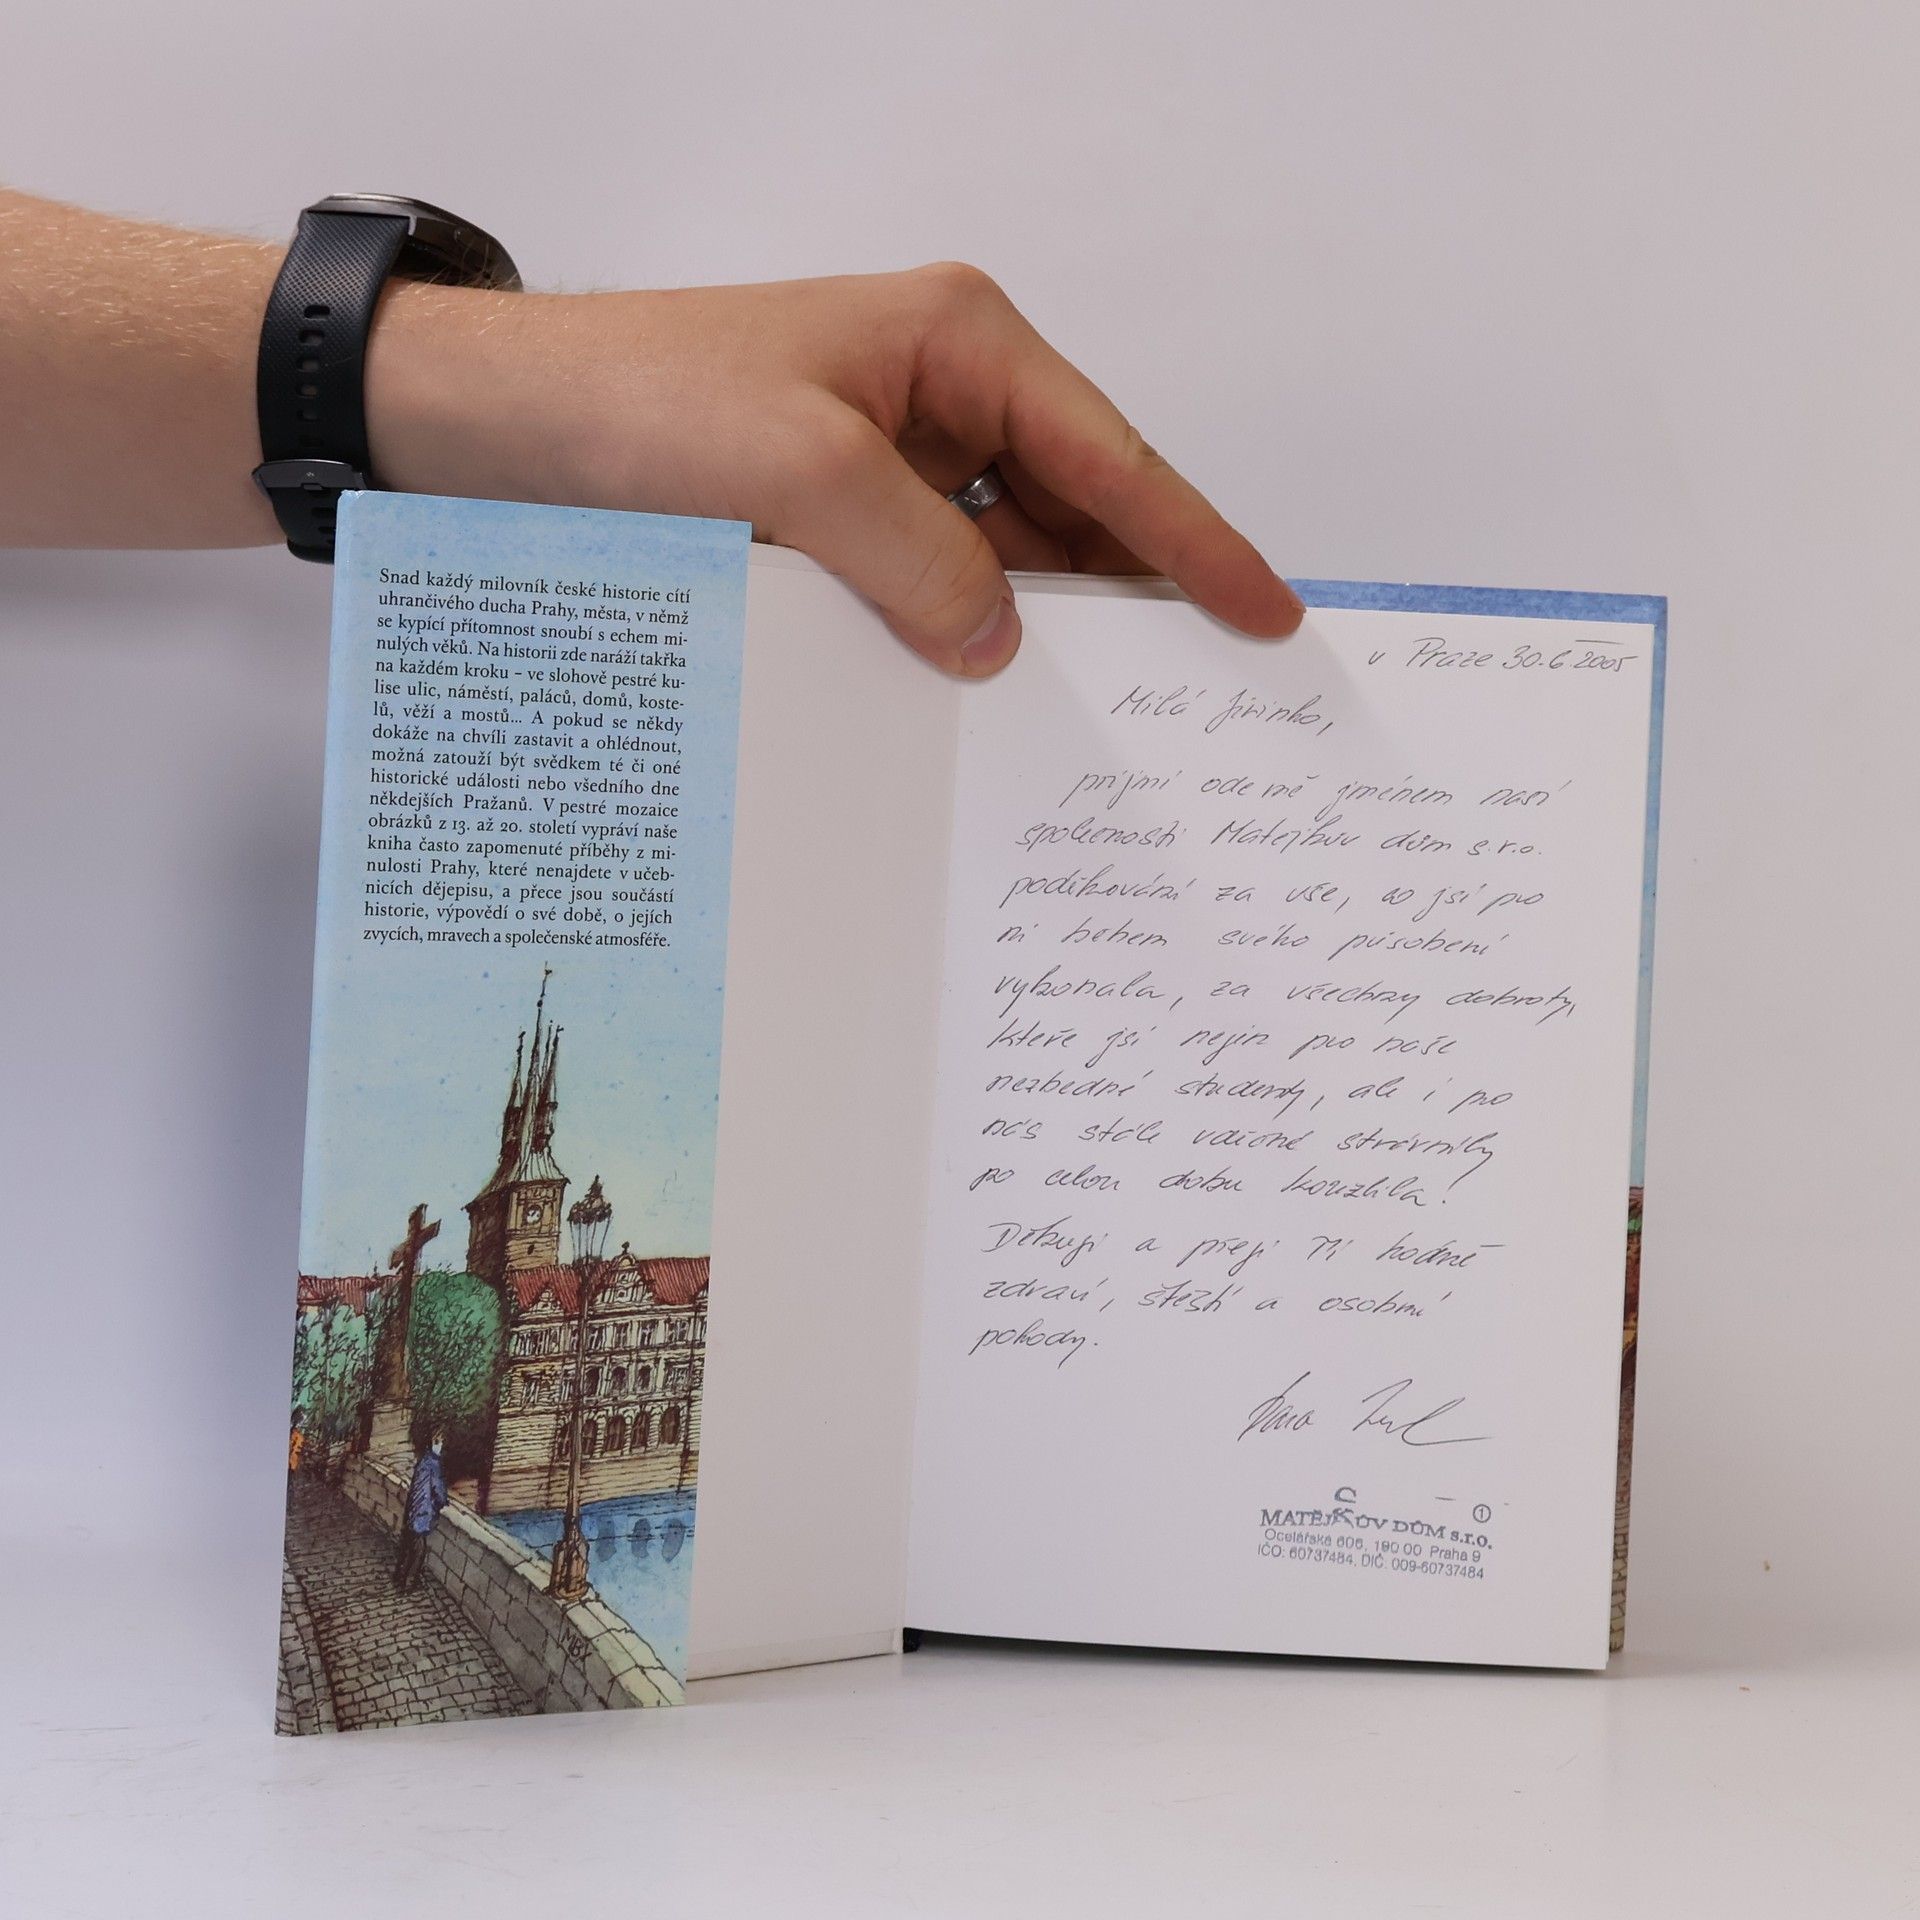 Snad každý milovník české historie cítí
uhrančivého ducha Prahy, města, v němž
se kypící přítomnost snoubí s echem mi-
nulých věků. Na historii zde naráží takřka
na každém kroku – ve slohově pestré ku-
lise ulic, náměstí, paláců, domů, koste-
lů, věží a mostů... A pokud se někdy
dokáže na chvíli zastavit a ohlédnout,
možná zatouží být svědkem té či oné
historické události nebo všedního dne
někdejších Pražanů. V pestré mozaice
obrázků z 13. až 20. století vypráví naše
kniha často zapomenuté příběhy z mi-
nulosti Prahy, které nenajdete v učeb-
nicích dějepisu, a přece jsou součástí
historie, výpovědí o své době, o jejích
zvycích, mravech a společenské atmosféře.
v Praze 30.6.2005
Milá Jiřinko,
přijmi ode mě jménem naší
společnosti Matějkův dům s.r.o.
poděkování za vše, co jsi pro
ni během svého působení
vykonala, za všechny dobroty,
kteře jsi nejen pro naše
nezbedné studenty, ale i pro
nás stálé vděčné strávníky
po celou dobu kouzlila!
Děkuji a přeji Ti hodně
zdraví, štěstí a osobní
pohody.
MATĚJKŮV DŮM s.r.o. 1
Ocelářská 606, 190 00 Praha 9
IČO: 60737484, DIČ: 009-60737484